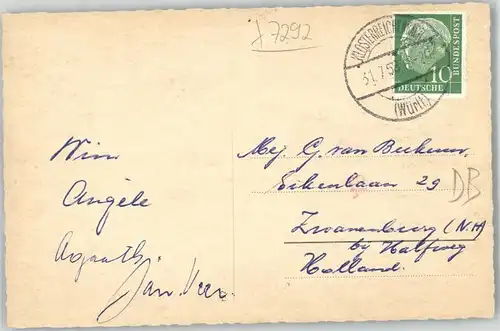 J 7292
KLOSTERREICHENBACH
31.7.5
(Württ)
10
DEUTSCHE
BUNDESPOST
Wim
Angèle
Agaath
Jan Veer.
Mej. G. van Beekum,
Eikenlaan 29
DB
Zwanenburg (N.H)
by Halfweg
Holland.